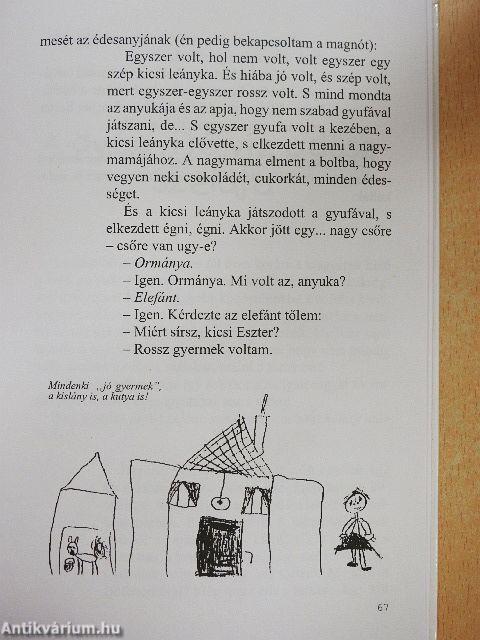 mesét az édesanyjának (én pedig bekapcsoltam a magnót):
Egyszer volt, hol nem volt, volt egyszer egy
szép kicsi leányka. És hiába jó volt, és szép volt,
mert egyszer-egyszer rossz volt. S mind mondta
az anyukája és az apja, hogy nem szabad gyufával
játszani, de... S egyszer gyufa volt a kezében, a
kicsi leányka elővette, s elkezdett menni a nagy-
mamájához. A nagymama elment a boltba, hogy
vegyen neki csokoládét, cukorkát, minden édes-
séget.
És a kicsi leányka játszodott a gyufával, s
elkezdett égni, égni. Akkor jött egy... nagy csőre
– csőre van ugy-e?
– Ormánya.
– Igen. Ormánya. Mi volt az, anyuka?
– Elefánt.
– Igen. Kérdezte az elefánt tőlem:
– Miért sírsz, kicsi Eszter?
– Rossz gyermek voltam.
Mindenki „jó gyermek”,
a kislány is, a kutya is!
67
Antikvárium.hu